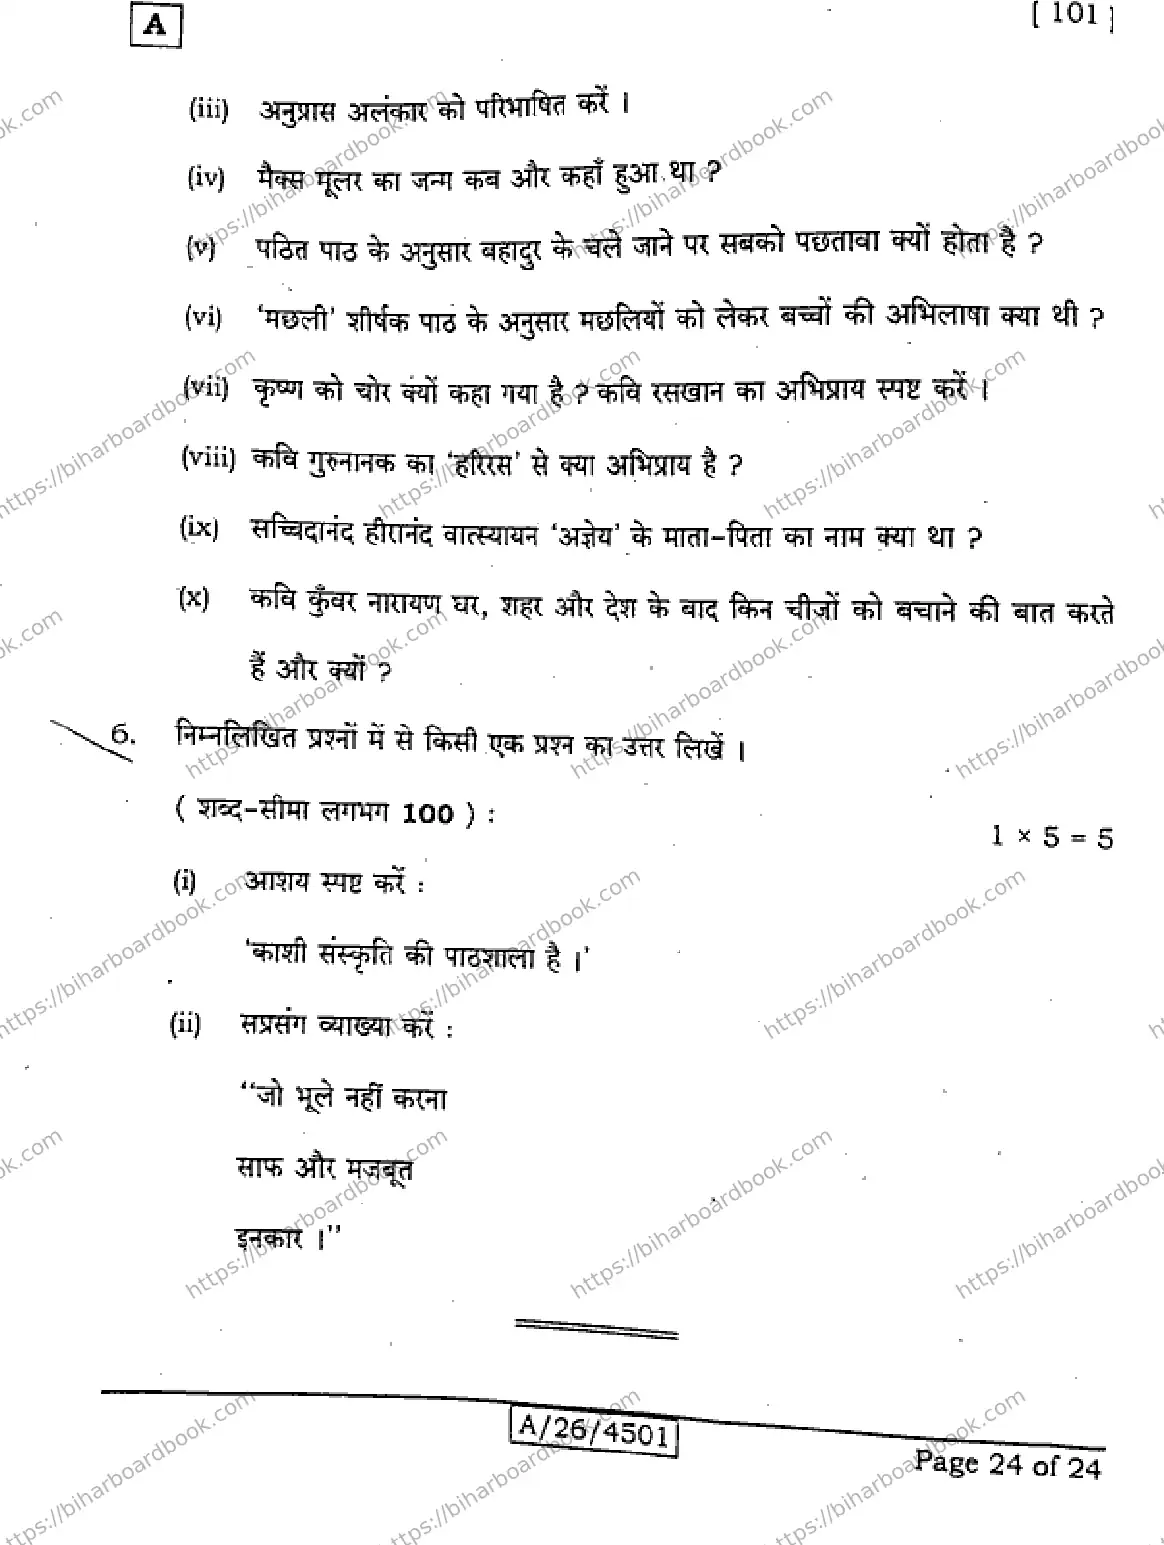 A
[ 101 ]
(iii) अनुप्रास अलंकार को परिभाषित करें ।
(iv) मैक्स मूलर का जन्म कब और कहाँ हुआ था ?
(v) पठित पाठ के अनुसार बहादुर के चले जाने पर सबको पछतावा क्यों होता है ?
(vi) ‘मछली’ शीर्षक पाठ के अनुसार मछलियों को लेकर बच्चों की अभिलाषा क्या थी ?
(vii) कृष्ण को चोर क्यों कहा गया है ? कवि रसखान का अभिप्राय स्पष्ट करें ।
(viii) कवि गुरुनानक का ‘हरिरस’ से क्या अभिप्राय है ?
(ix) सच्चिदानंद हीरानंद वात्स्यायन ‘अज्ञेय’ के माता-पिता का नाम क्या था ?
(x) कवि कुँवर नारायण घर, शहर और देश के बाद किन चीज़ों को बचाने की बात करते
हैं और क्यों ?
6. निम्नलिखित प्रश्नों में से किसी एक प्रश्न का उत्तर लिखें ।
( शब्द-सीमा लगभग 100 ) :
1 × 5 = 5
(i) आशय स्पष्ट करें :
‘काशी संस्कृति की पाठशाला है ।’
(ii) सप्रसंग व्याख्या करें :
“जो भूले नहीं करना
साफ और मजबूत
इनकार ।”
A/26/4501
Page 24 of 24
https://biharboardbook.com